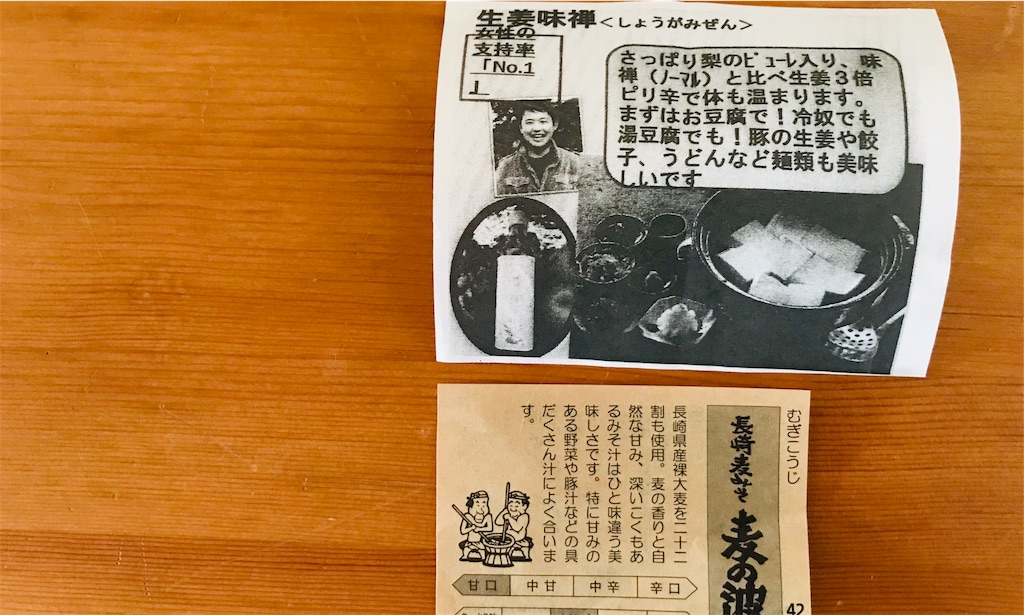 生姜味禅<しょうがみぜん>
女性の
支持率
「No.1
」
さっぱり梨のﾋﾟｭｰﾚ入り、味
禅（ﾉｰﾏﾙ）と比べ生姜３倍
ピリ辛で体も温まります。
まずはお豆腐で！冷奴でも
湯豆腐でも！豚の生姜や餃
子、うどんなど麺類も美味
しいです
むぎこうじ
長崎麦みそ
麦の波
42
長崎県産裸大麦を二十二
割も使用。麦の香りと自
然な甘み、深いこくもあ
るみそ汁はひと味違う美
味しさです。特に甘みの
ある野菜や豚汁などの具
だくさん汁によく合いま
す。
甘口
中甘
中辛
辛口